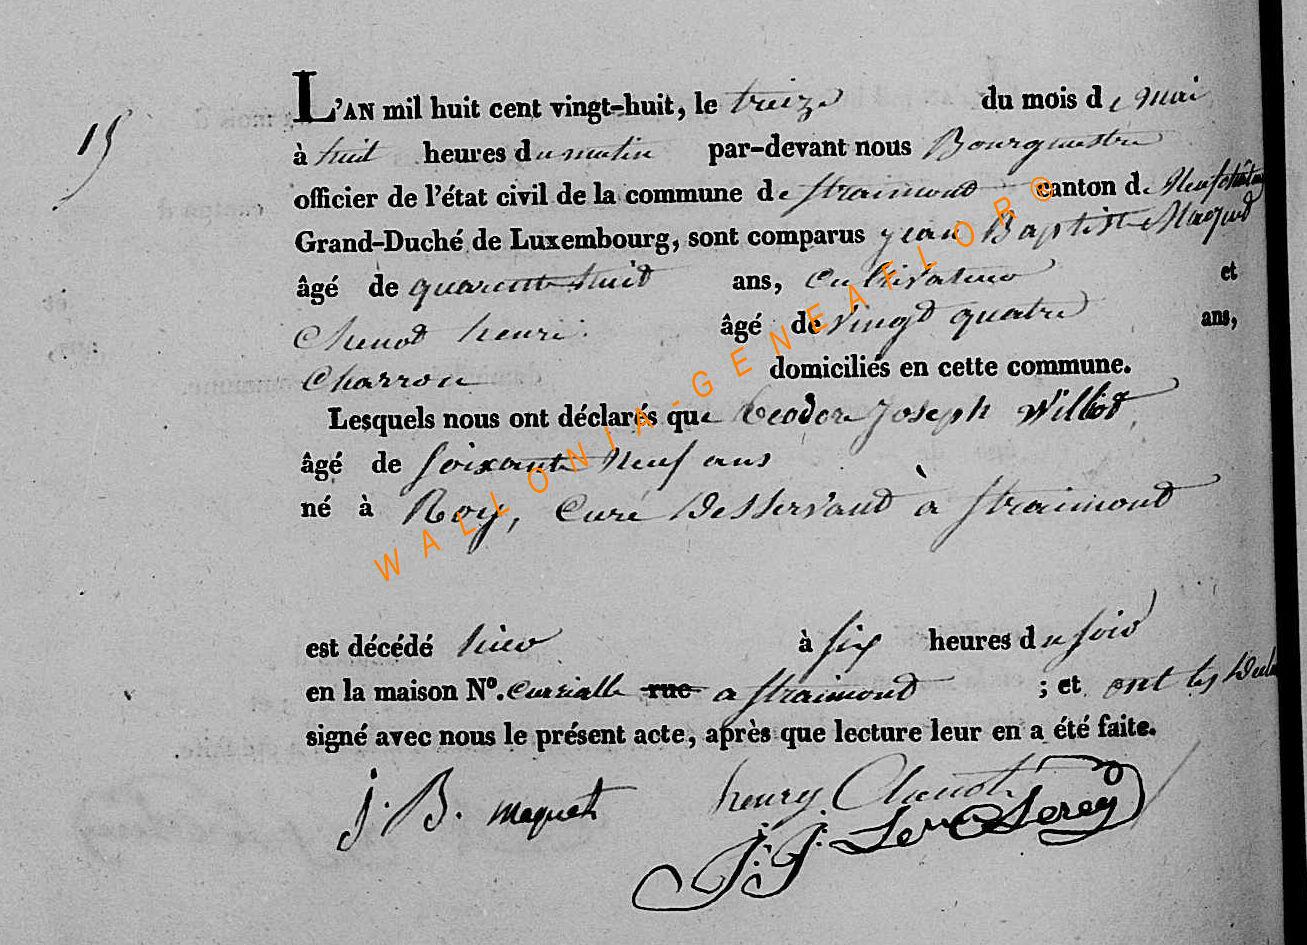 15
L'AN mil huit cent vingt-huit, le treize du mois de mai
à huit heures du matin par-devant nous Bourgmestre
officier de l'état civil de la commune de Straimont canton de
Grand-Duché de Luxembourg, sont comparus jean Baptiste Maquet
âgé de quarente huit ans, Cultivateur et
Chenot henri âgé de vingt quatre ans,
Charron domiciliés en cette commune.
Lesquels nous ont déclarés que teodore joseph Willot
âgé de soixante neuf ans
né à Roy, Curé Desservant à Straimont
est décédé hier à six heures du soir
en la maison Nº. Curialle rue a Straimont ; et ont les
signé avec nous le présent acte, après que lecture leur en a été faite.
J. B. maquet henry Chenot
J. J.
WALLONIA-GENEAFLOR©